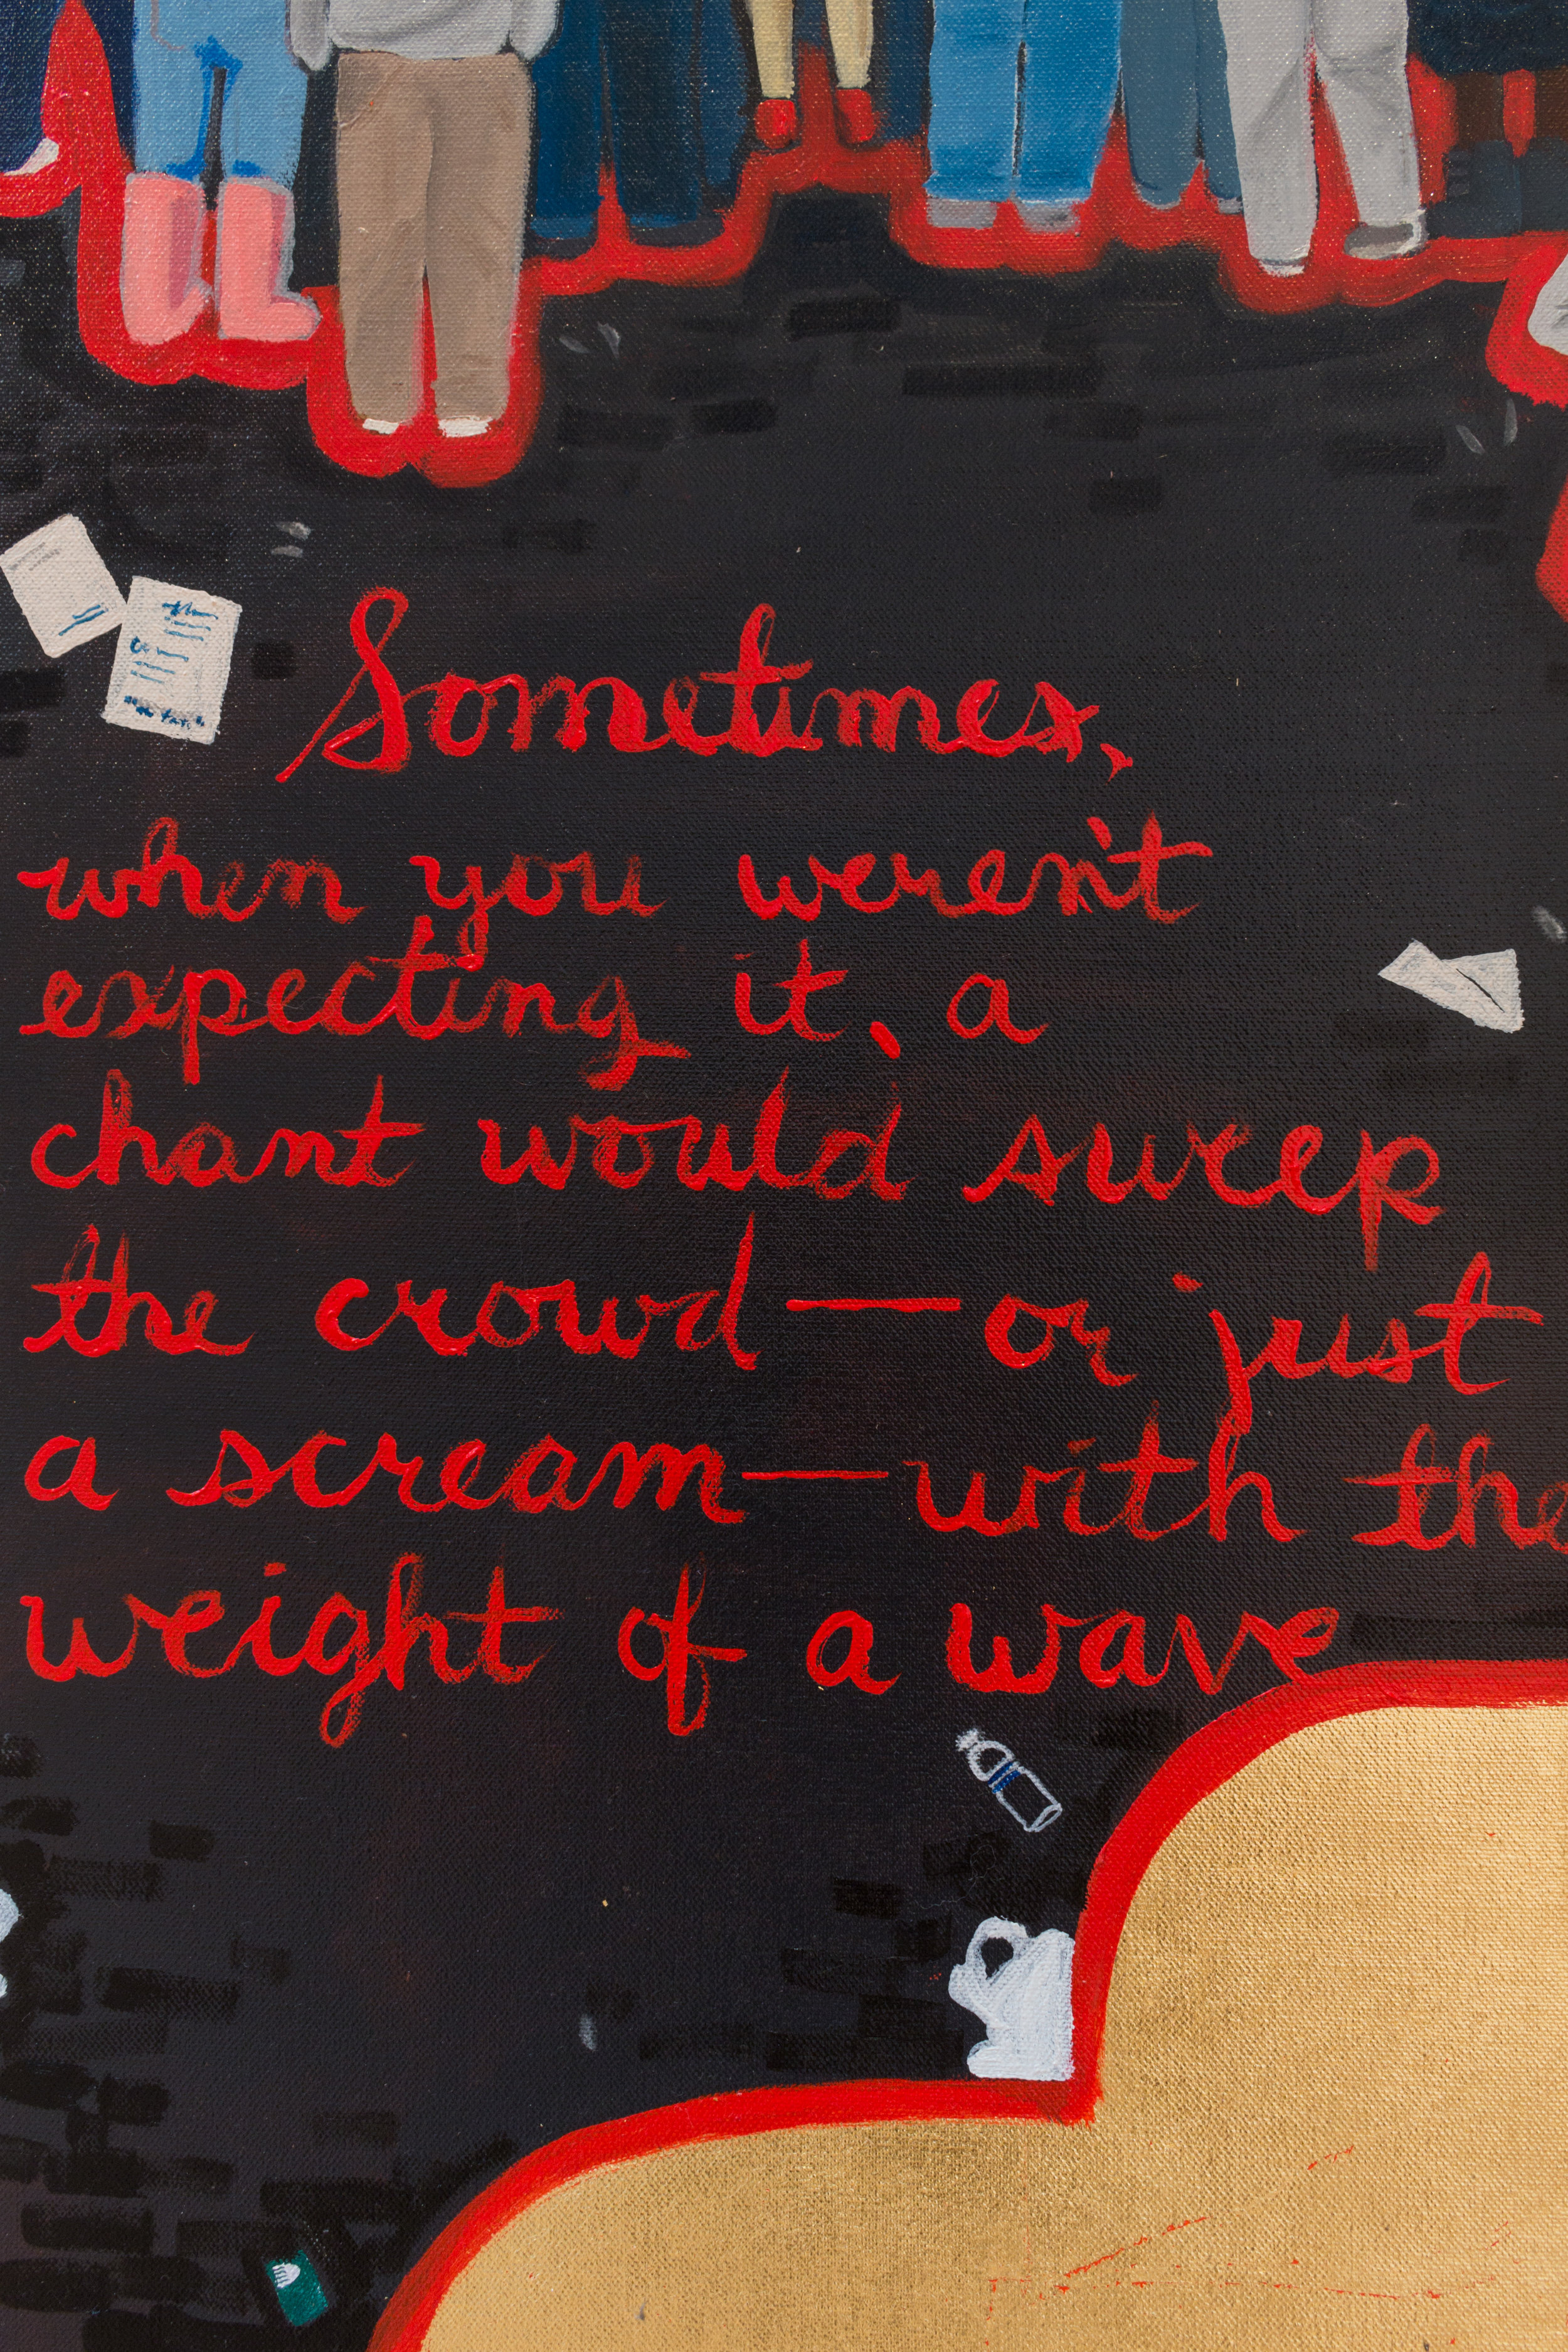 Sometimes,
when you weren't
expecting it, a
chant would sweep
the crowd—or just
a scream—with the
weight of a wave